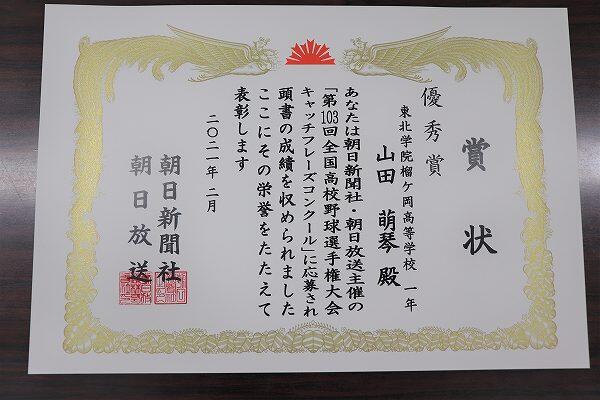 賞状
優秀賞
東北学院榴ケ岡高等学校 一年
山田 萌琴 殿
あなたは朝日新聞社・朝日放送主催の
「第103回全国高校野球選手権大会
キャッチフレーズコンクール」に応募され
頭書の成績を収められました
ここにその栄誉をたたえて
表彰します
二〇二一年 二月
朝日新聞社
朝日放送